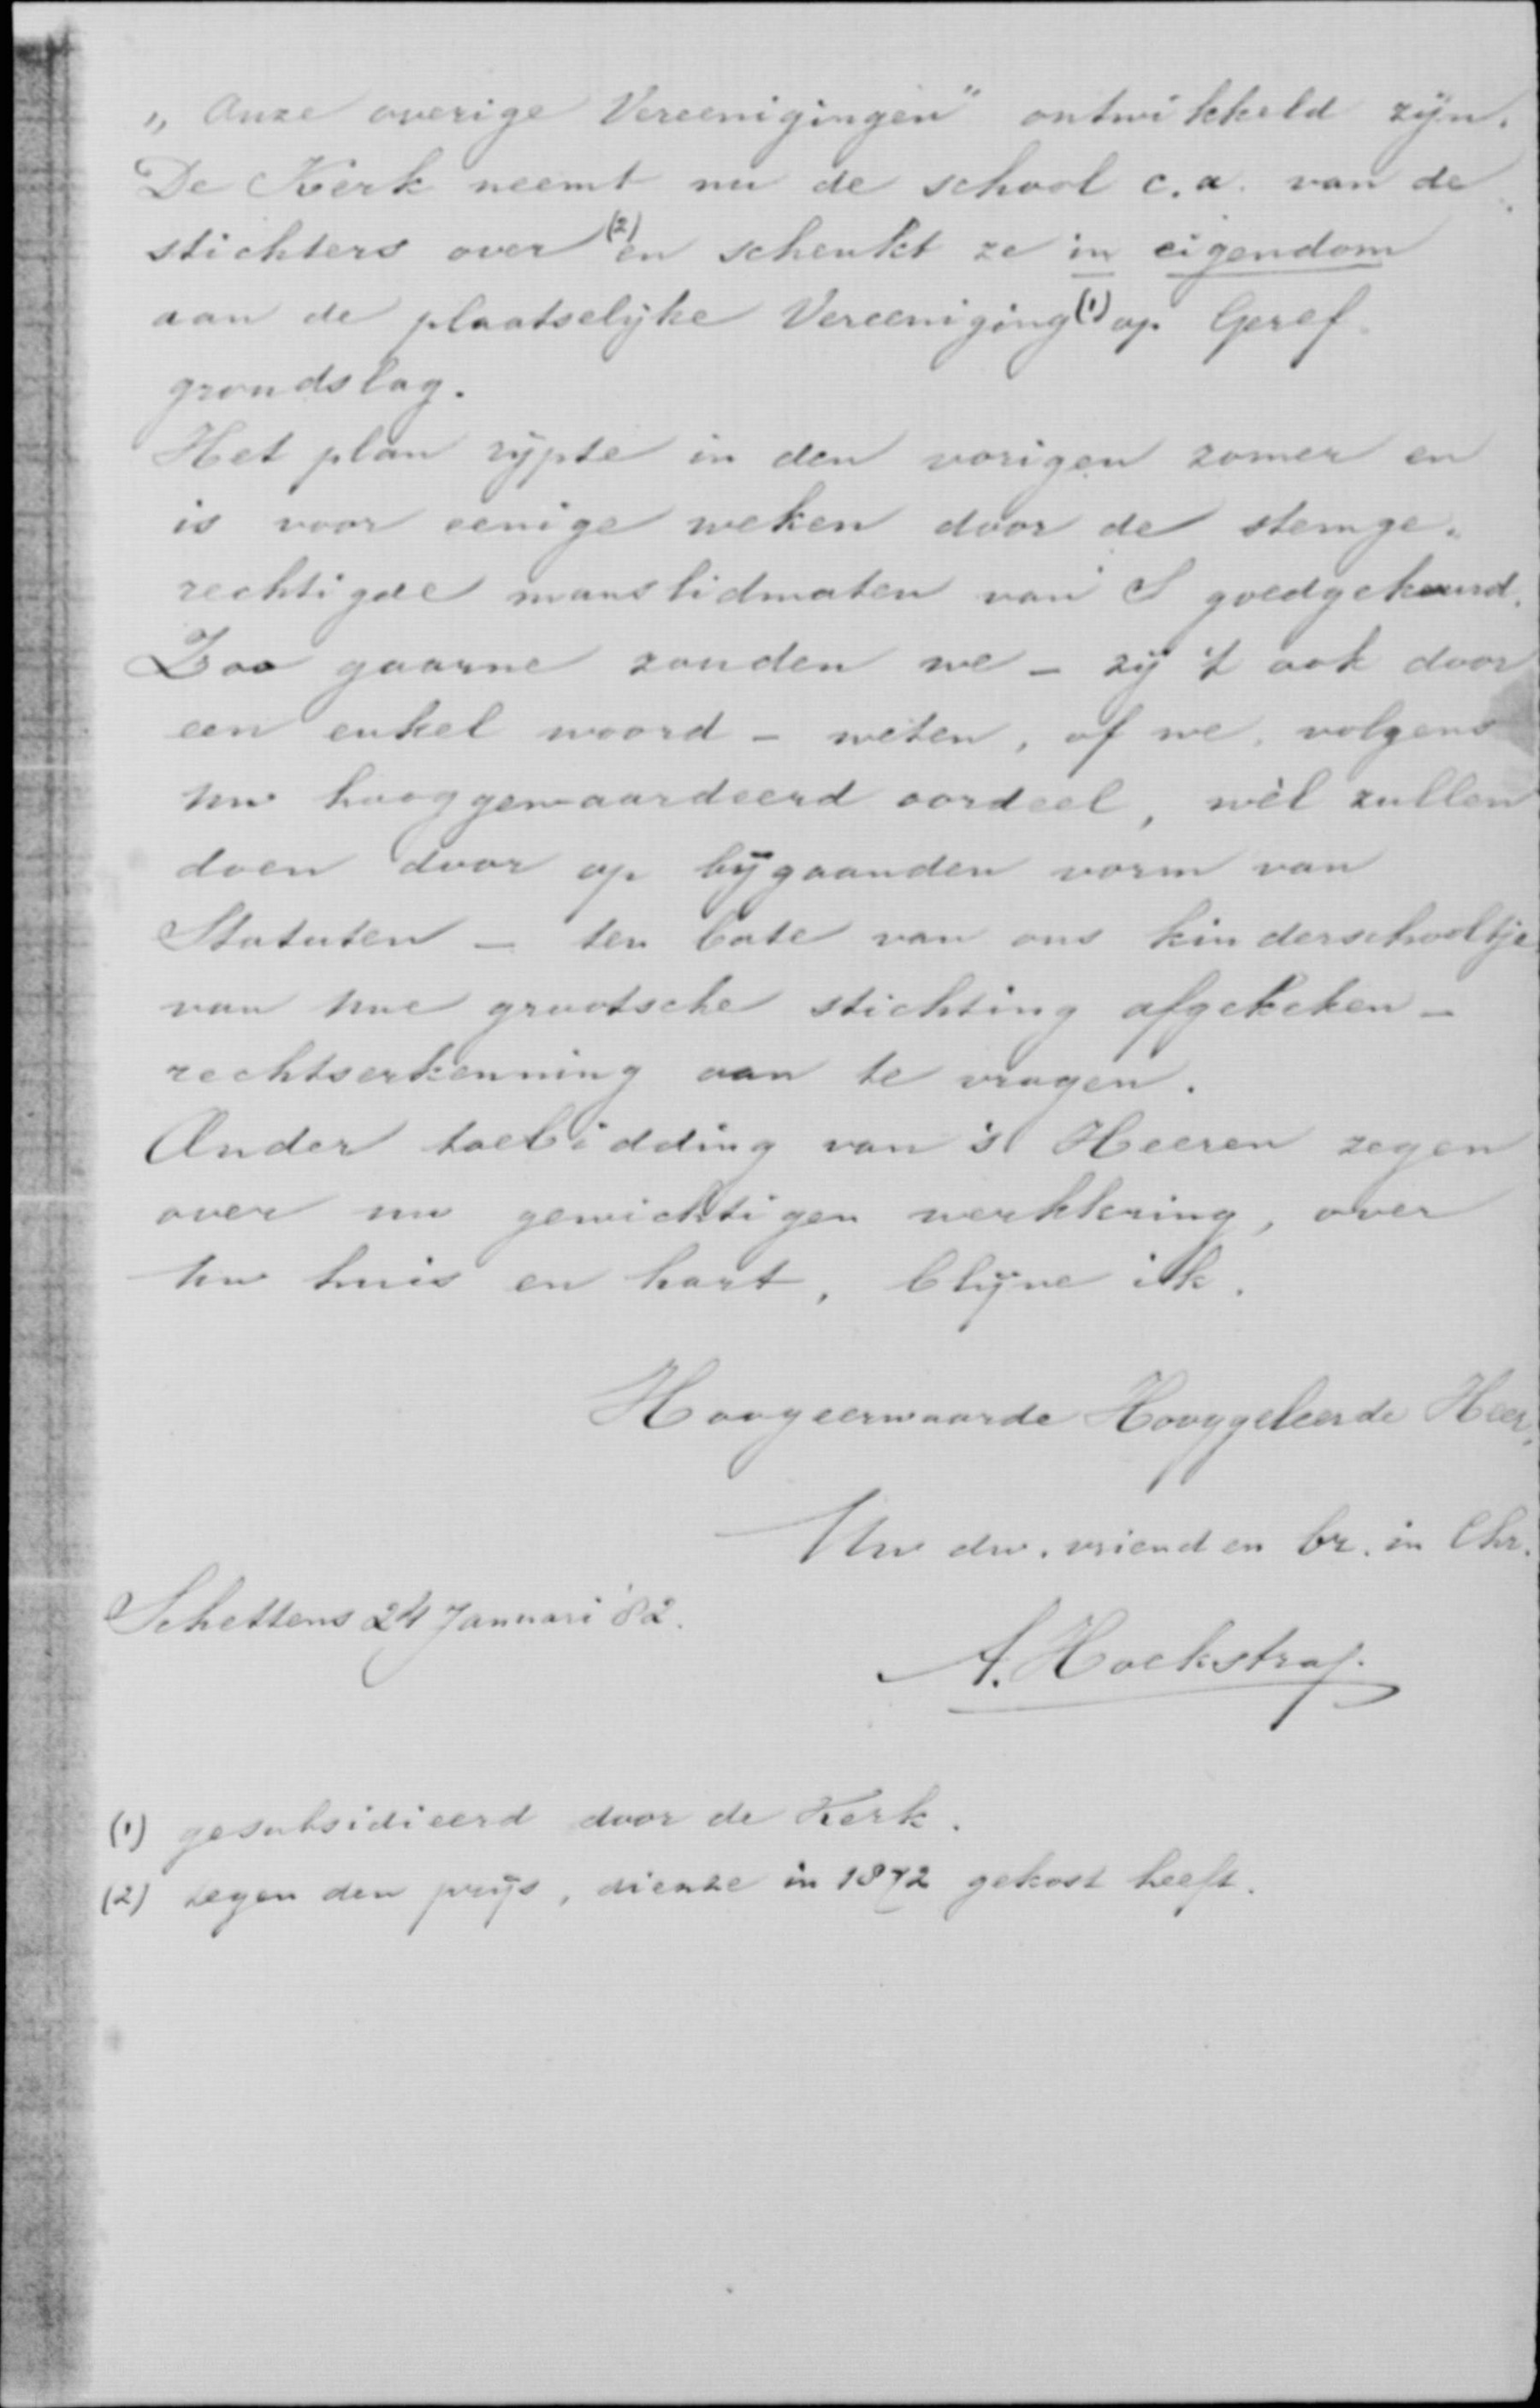 „Onze overige Vereenigingen" ontwikkeld zijn.
De Kerk neemt nu de school c.a. van de
stichters over (2) en schenkt ze in eigendom
aan de plaatselijke Vereeniging (1) op Geref.
grondslag.
Het plan rijpte in den vorigen zomer en
is voor eenige weken door de stemge-
rechtigde manslidmaten van S goedgekeurd.
Zoo gaarne zouden we - zij 't ook door
een enkel woord - weten, of we, volgens
Uw hooggewaardeerd oordeel, wèl zullen
doen door op bijgaanden vorm van
Statuten - ten bate van ons kinderschooltje
van Uwe grootsche stichting afgekeken -
rechtserkenning aan te vragen.
Onder toebidding van 's Heeren zegen
over uw gewichtigen werkkring, over
Uw huis en hart, blijve ik.
Hoogeerwaarde Hooggeleerde Heer,
Uw dw. vriend en br. in Chr.
Schettens 24 Januari '82.
A. Hoekstra
(1) gesubsidieerd door de Kerk.
(2) tegen den prijs, dien ze in 1872 gekost heeft.